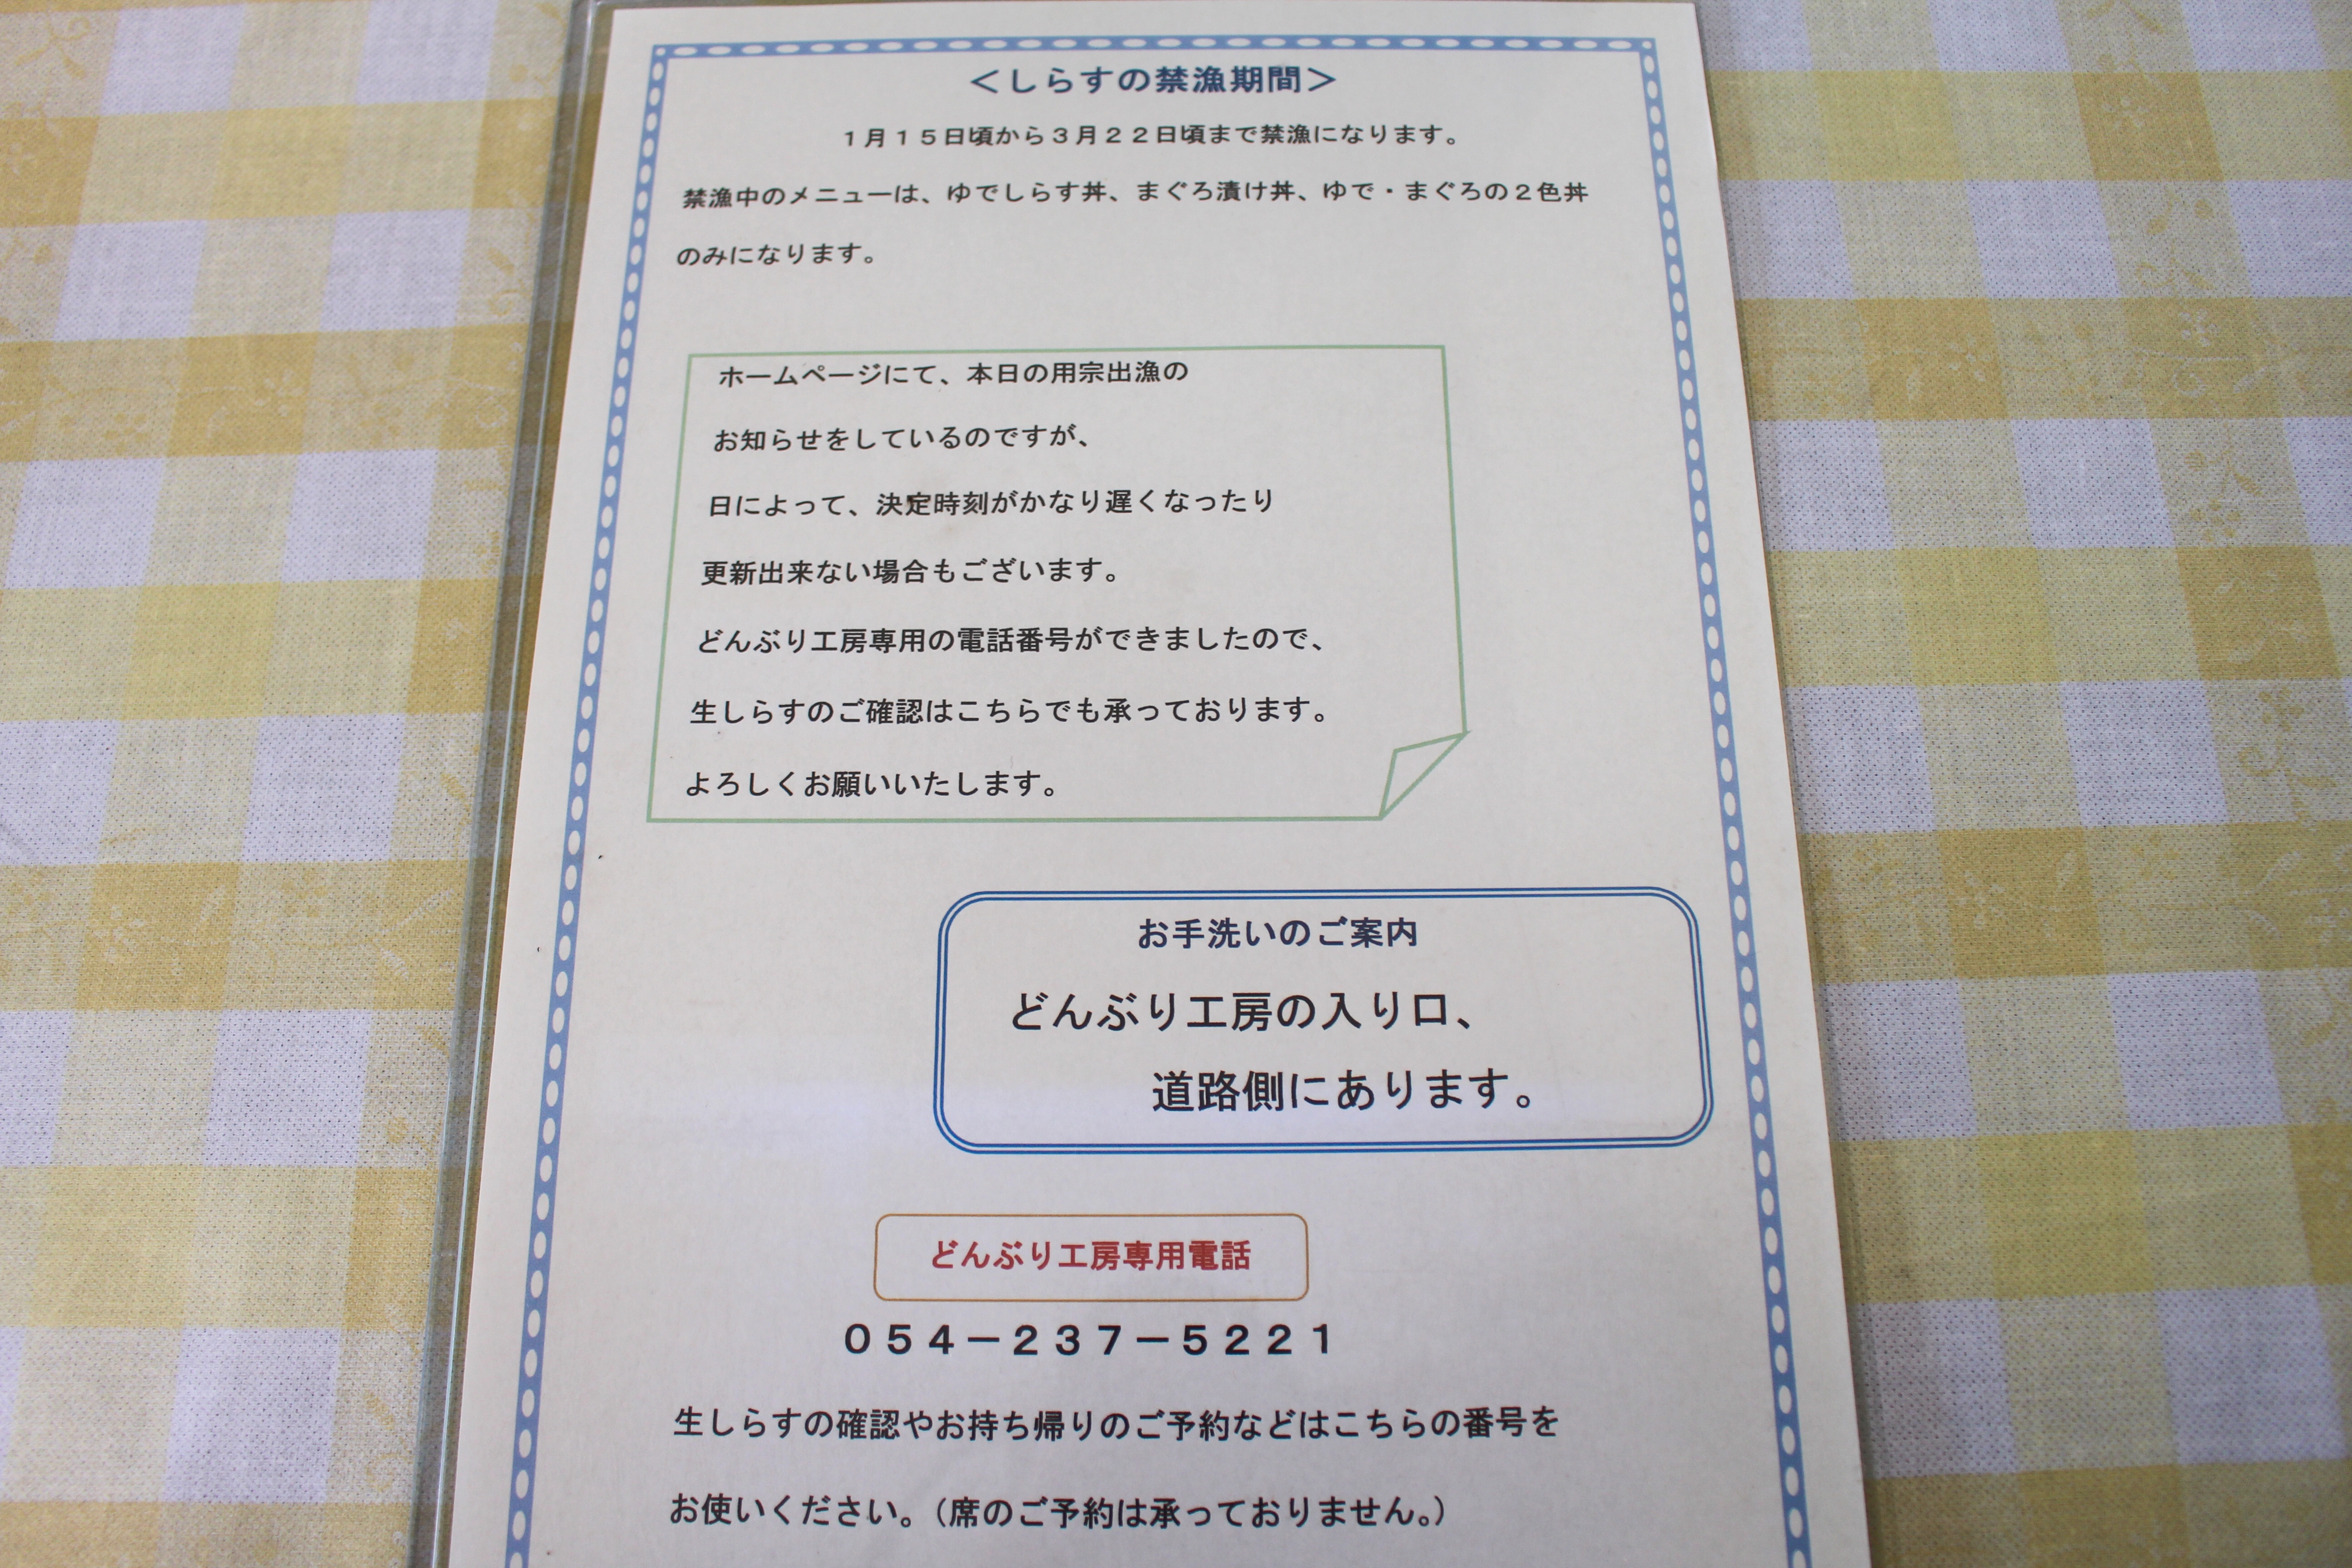 ＜しらすの禁漁期間＞
１月１５日頃から３月２２日頃まで禁漁になります。
禁漁中のメニューは、ゆでしらす丼、まぐろ漬け丼、ゆで・まぐろの２色丼
のみになります。
ホームページにて、本日の用宗出漁の
お知らせをしているのですが、
日によって、決定時刻がかなり遅くなったり
更新出来ない場合もございます。
どんぶり工房専用の電話番号ができましたので、
生しらすのご確認はこちらでも承っております。
よろしくお願いいたします。
お手洗いのご案内
どんぶり工房の入り口、
道路側にあります。
どんぶり工房専用電話
０５４－２３７－５２２１
生しらすの確認やお持ち帰りのご予約などはこちらの番号を
お使いください。（席のご予約は承っておりません。）